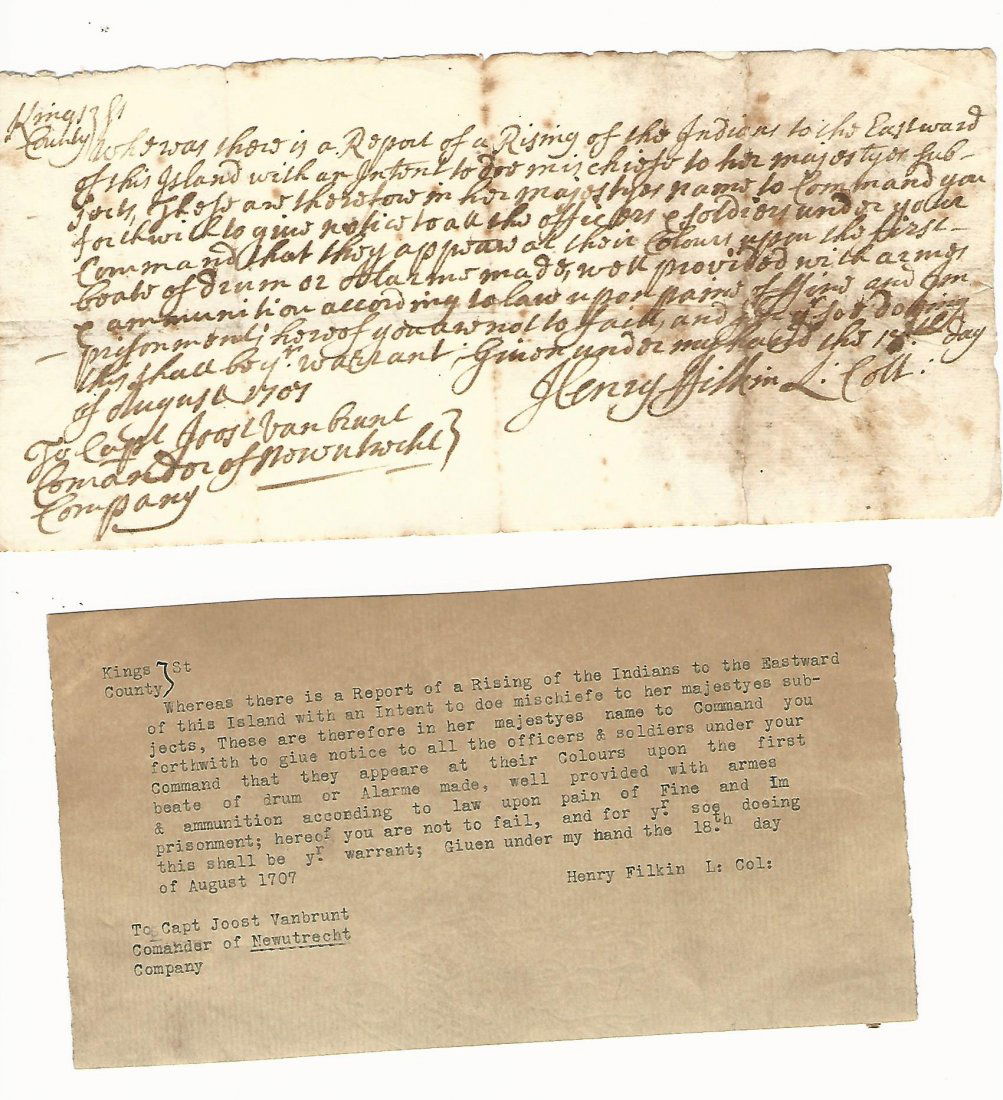 Kings } ss
County
Whereas there is a Report of a Rising of the Indians to the Eastward
of this Island with an Intent to doe mischiefe to her majestyes sub-
jects, These are therefore in her majestyes name to Command you
forthwith to give notice to all the officers & soldiers under your
Command that they appeare at their Colours upon the first
beate of drum or Alarme made, well provided with armes
& ammunition according to law upon paine of ffine and Im
prisonment; hereof you are not to faile, and for yr soe doeing
this shall be yr warrant; Given under my hand the 18th day
of August 1707
Henry Filkin L: Coll:
To Capt Joost Vanbrunt
Comander of Newutrecht }
Company
Kings } St
County
Whereas there is a Report of a Rising of the Indians to the Eastward
of this Island with an Intent to doe mischiefe to her majestyes sub-
jects, These are therefore in her majestyes name to Command you
forthwith to giue notice to all the officers & soldiers under your
Command that they appeare at their Colours upon the first
beate of drum or Alarme made, well provided with armes
& ammunition according to law upon pain of Fine and Im
prisonment; hereof you are not to fail, and for yr soe doeing
this shall be yr warrant; Giuen under my hand the 18th day
of August 1707
Henry Filkin L: Col:
To Capt Joost Vanbrunt
Comander of Newutrecht
Company